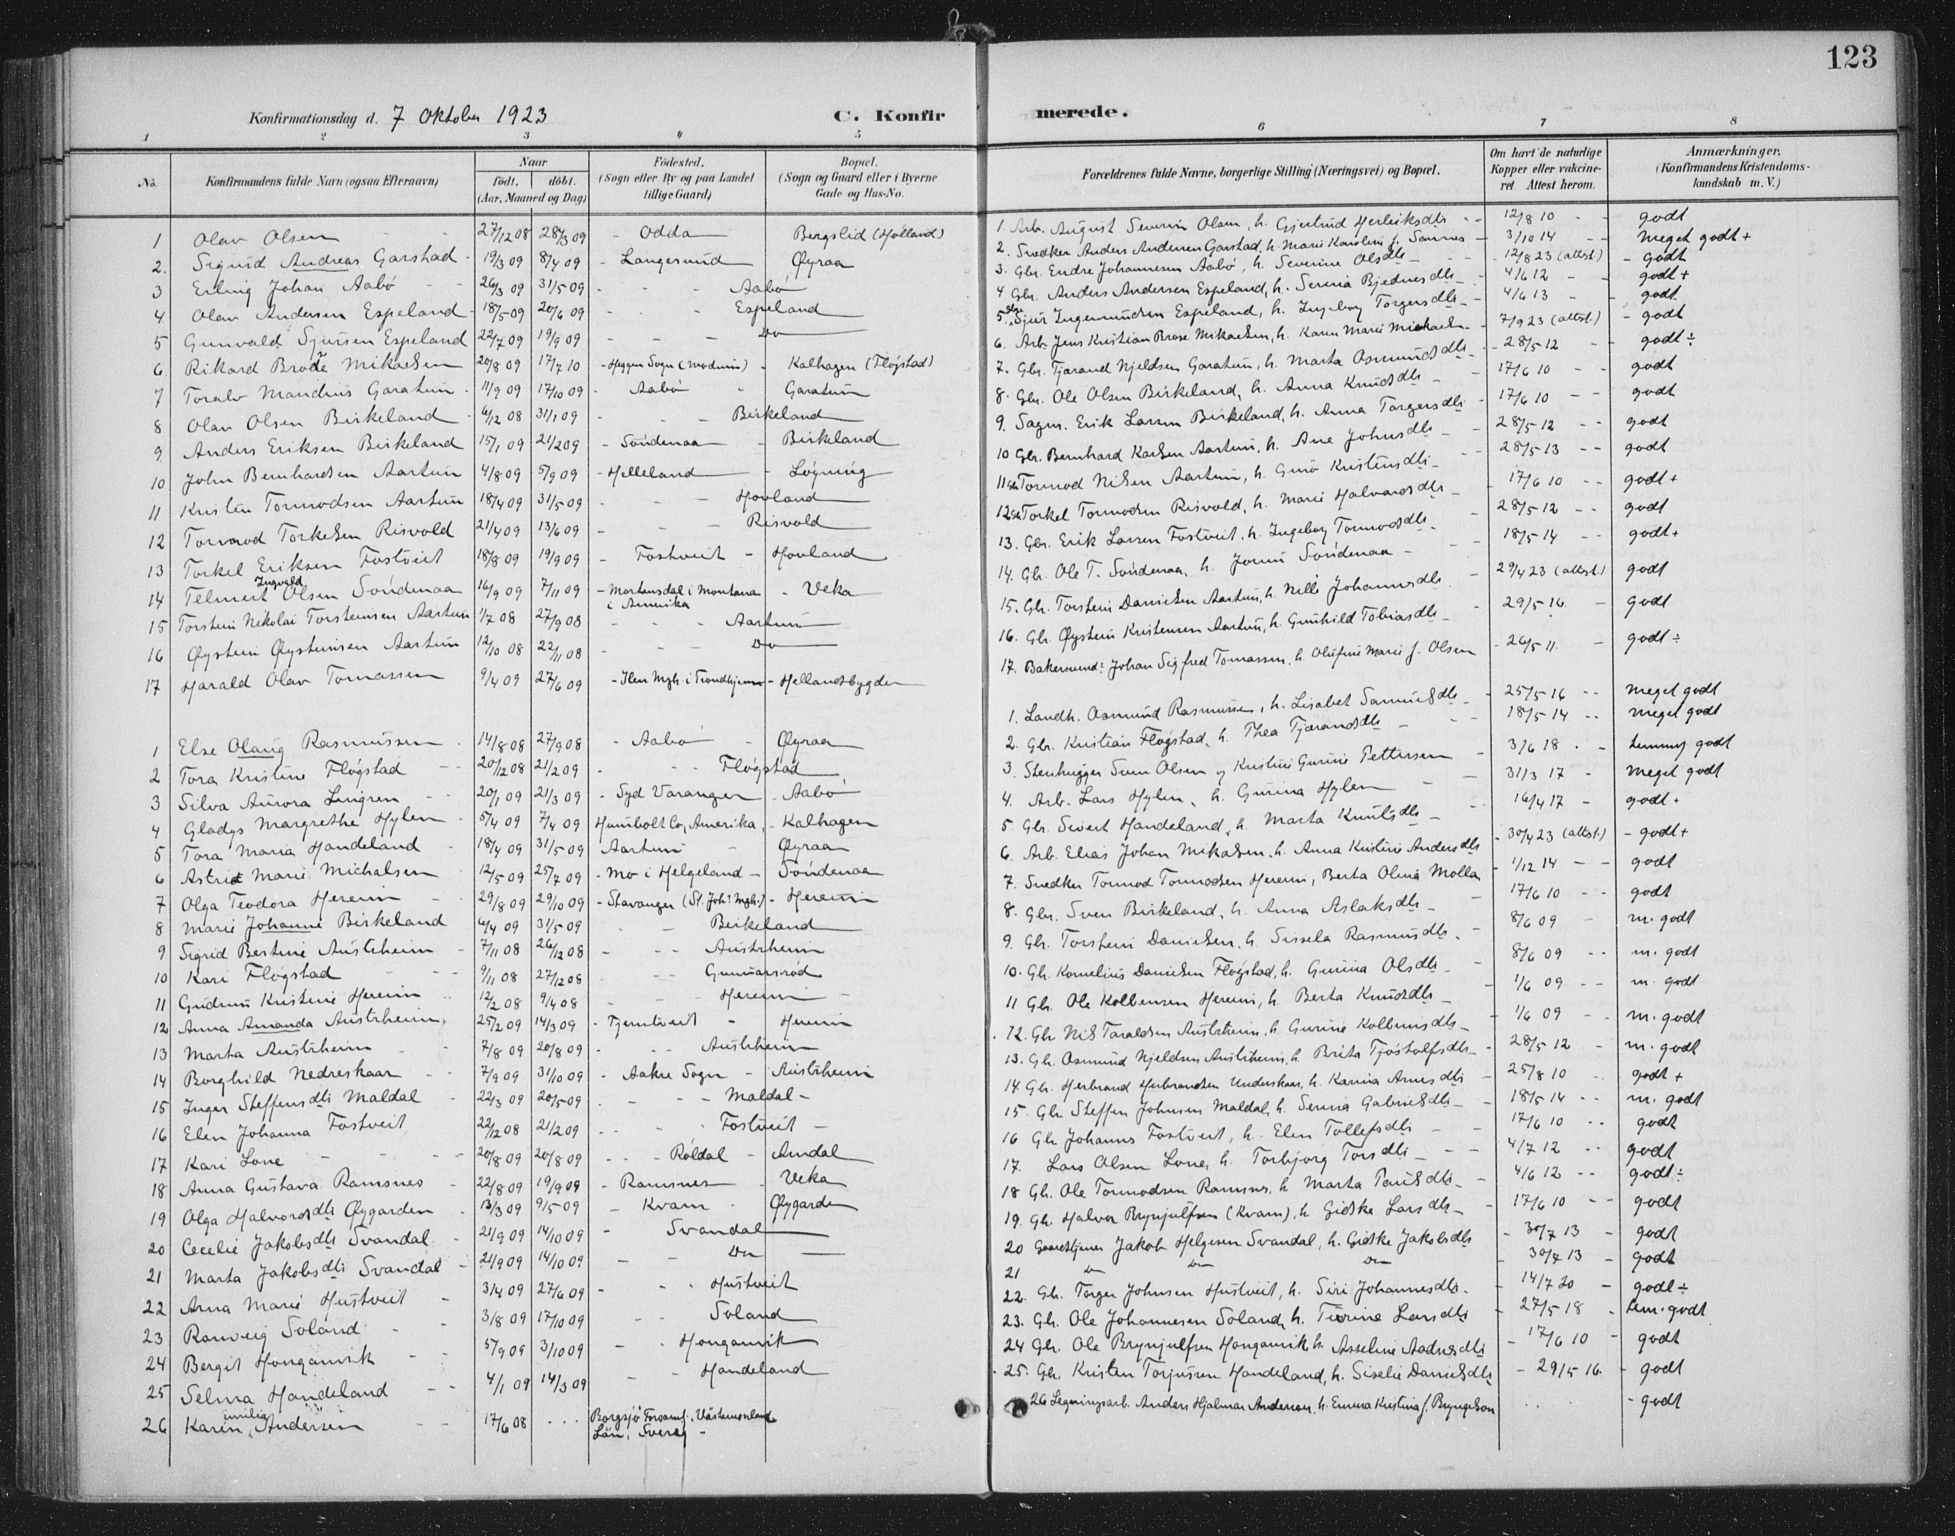 123
Konfirmationsdag d. 7 Oktober 1923 C. Konfirmerede.
1 2 3 4 5 6 7 8
No. Konfirmandens fulde Navn (ogsaa Efternavn) Naar födt. döbt. (Aar, Maaned og Dag) Födested. (Sogn eller By og paa Landet tillige Gaard) Bopæl. (Sogn og Gaard eller i Byerne Gade og Hus-No.
Forældrenes fulde Navne, borgerlige Stilling (Næringsvei) og Bopæl. Om havt de naturlige Kopper eller vakcineret Attest herom. Anmærkninger. (Konfirmandens Kristendomskundskab m. V.)
1 Olav Olsen 27/12 08 28/3 09 - Odda Bergslid (Hølland) 1. Arb. August Severin Olsen, h. Gjertrud Herleiksdtr 12/8 10 godt
2. Sigurd Andreas Garstad 19/3 09 8/4 09 - Langesund Øyraa 2. Snedker Anders Andersen Garstad, h. Marie Karoline f. Sannes 3/10 14 meget godt +
3 Erling Johan Aabø 26/3 09 31/5 09 - Aabø 3. Gbr. Endre Johannesen Aabø, h. Severine Olsdtr 12/8 23 (attest.) godt
4 Olav Andersen Espeland 18/5 09 20/6 09 Espeland 4 Gbr. Anders Andersen Espeland, h. Serina Bjednesdtr 4/6 12 godt +
5 Gunvald Sjursen Espeland 22/7 09 19/9 09 Do 5. Sjur Ingemundsen Espeland, h. Ingeborg Torgersdtr 4/6 13 godt
6 Rikard Brose Mikaelsen 20/8 09 17/7 10 - Heggen Sogn (Modum) - Kalhagen (Fløgstad) 6. Arb. Jens Kristian Brose Mikaelsen, h. Karen Marie Mickaels. 7/9 23 (attest.) godt
7 Toralv Mandius Garatun 11/9 09 17/10 09 - Aabø Garatun 7. Gbr. Tjærand Njeldsen Garatun, h. Marta Osmundsdtr 28/5 12 godt ÷
8 Olav Olsen Birkeland 6/12 08 31/1 09 Birkeland 8. Gbr. Ole Olsen Birkeland, h. Anna Knudsdtr 17/6 10 godt
9 Anders Eriksen Birkeland 15/1 09 21/2 09 - Søndenaa Birkeland 9. Sagm. Erik Larsen Birkeland, h. Anna Torgersdtr 17/6 10 godt
10 John Bernhardsen Aartun 4/8 09 5/9 09 - Helleland - Løyning 10 Gbr. Bernhard Karlsen Aartun, h. Ane Johnsdtr 28/5 12 godt
11 Kristen Tormodsen Aartun 18/4 09 31/5 09 Hovland 11 Tormod Nilsen Aartun, h. Guro Kristensdtr 28/5 13 godt
12 Tormod Torkelsen Risvold 21/4 09 13/6 09 Risvold 12 Torkel Tormodsen Risvold, h. Marie Halvardsdtr 17/6 10 godt +
13 Torkel Eriksen Fostveit 18/8 09 19/9 09 - Fostveit - Hovland 13. Gbr. Erik Larsen Fostveit, h. Ingeborg Tormodsdtr 28/5 12 godt
14 Telmert Ingvald Olsen Søndenaa 16/9 09 7/11 09 - Mortensdal i Montana i Amerika - Veka 14. Gbr. Ole T. Søndenaa, h. Joruni Søndenaa 18/5 14 godt +
15 Torstein Nikolai Torsteinsen Aartun 1/7 08 27/9 08 Aartun 15. Gbr. Torstein Danielsen Aartun, h. Nelli Johannesdtr 29/4 23 (attest.) godt
16 Øystein Øysteinsen Aartun 12/10 08 22/11 08 Do 16. Gbr Øystein Kristensen Aartun, h. Gunhild Tobiasdtr 29/5 16. godt
17 Harald Olav Tomassen 9/4 09 27/6 09 - Ilen Mgh. i Trondhjem - Hellandsbygden 17. Bakersvend Johan Sigfred Tomassen, h. Olufine Marie f. Olsen 26/5 11. godt ÷
1 Else Olaug Rasmussen 14/8 08 27/9 08 - Aabø - Øyraa 1. Landh. Osmund Rasmussen, h. Lisabet Samuelsdtr 25/5 16 meget godt
2 Tora Kristine Fløgstad 20/12 08 21/2 09 Fløgstad 2. Gbr. Kristian Fløgstad, h. Thea Tjærandsdtr 18/5 14 meget godt
3 Silva Aurora Lingren 20/1 09 21/3 09 - Syd Varanger - Aabø 3. Stenhugger Sven Olsen og Kristine Gurine Pettersen 3/6 18 temmeg godt
4 Gladys Margrethe Hylen 5/4 09 7/4 09 Humbolt Co, Amerika, - Kalhagen 4. Arb. Lars Hylen, h. Gurina Hylen 31/3 17 meget godt
5 Tora Maria Handeland 18/4 09 31/5 09 Aartun Øyraa 5 Gbr. Sivert Handeland, h. Marta Knutsdtr 16/4 17 godt +
6 Astrid Marie Michalsen 12/5 09 25/7 09 - Mo i Helgeland - Søndenaa 6. Arb. Elias Johan Mikalsen, h. Anna Kristine Andersdtr 30/4 23 (attest.) godt +
7 Olga Teodora Hereim 29/8 09 29/10 09 - Stavanger (St. Joh? Mgh.) - Hereim 7. Snedker Tormod Tormodsen Hereim, Berta Olina Molla 1/12 14 godt
8 Marie Johanne Birkeland 6/4 09 31/5 09 Birkeland 8. Gbr. Sven Birkeland, h. Anna Aslaksdtr 17/6 10 godt
9 Sigrid Bertine Austrheim 7/11 08 26/12 08 Austrheim 9. Gbr. Torstein Danielsen, h. Sissela Rasmusdtr 8/6 09 m. godt
10 Kari Fløgstad 9/11 08 27/12 08 Gunnarsrød 10. Gbr. Kornelius Danielsen Fløgstad, h. Gurina Olsdtr 8/6 09 m. godt
11 Gudrun Kristine Hereim 12/2 08 9/4 08 Hereim 11 Gbr. Ole Kolbensen Hereim, h. Berta Knudsdtr 1/6 09 m. godt
12 Anna Amanda Austrheim 25/2 09 14/3 09 - Fjerntveit - Hereim 12. Gbr Nils Taraldsen Austrheim, h. Gurine Kolbeinsdtr 1/6 09 m. godt
13 Marta Austrheim 7/8 09 20/8 09 Austrheim 13. Gbr. Osmund Njeldsen Austrheim, h. Brita Tjøstolfsdtr 28/5 12 m. godt
14 Borghild Nedreskaar 7/9 09 31/10 09 - Aakre Sogn - Austrheim 14. Gbr. Herbrand Herbrandsen Underskaar, h. Karina Arnesdtr 25/8 10 godt +
15 Inger Steffensdtr Maldal 22/3 09 20/5 09 Maldal 15. Gbr Steffen Johnsen Maldal, h. Serina Gabrielsdtr 18/5 14 m. godt
16 Elen Johanna Fostveit 22/12 08 21/2 09 Fostveit 16 Gbr Johannes Fostveit, h. Elen Tollefsdtr 17/6 10 godt
17 Kari Lone 20/8 09 20/8 09 Røldal - Amdal 17. Lars Olsen Lone, h. Torbjørg Torsdtr 4/7 12 godt
18 Anna Gustava Ramsnes 22/8 09 19/9 09 - Ramsnes - Veka 18 Gbr. Ole Tormodsen Ramsnes, h. Marta Paulsdtr 4/6 12 godt ÷
19 Olga Halvordsdtr Øygarden 13/3 09 9/5 09 - Kvam Øygarden 19. Gbr. Halvor Brynjulfsen (Kvam), h. Gidske Larsdtr 17/6 10 godt
20 Cecelie Jakobsdtr Svandal 21/9 09 14/10 09 Svandal 20 Jakob Helgesen Svandal, h. Gidske Jakobsdtr 30/7 13 godt
21 Marta Jakobsdtr Svandal 21/9 09 14/10 09 Do 21 Do Do Do 30/7 13 godt
22 Anna Marie Hustveit 3/4 09 27/6 09 Hustveit 22. Gbr. Torger Johnsen Hustveit, h. Siri Johannesdtr 14/7 20 godt ÷
23 Ranveig Soland 3/8 09 17/10 09 Soland 23. Gbr. Ole Johannesen Soland, h. Turine Larsdtr 27/5 18 tem. godt
24 Bergit Honganvik 5/9 09 3/10 09 Honganvik 24 Gbr. Ole Brynjulfsen Honganvik, h. Asseline Aadnesdtr 17/6 10 godt
25 Selma Handeland 4/1 09 14/3 09 Handeland 25. Gbr. Kristen Torjussen Handeland, h. Siselie Danielsdtr 29/5 16. godt
26 Karin Emilia Andersen 17/6 08 Borgsjö Forsaml., Västernorlands Län, Sverig 26 Legningsarb. Anders Hjalmar Andersen, h. Emma Kristina f. Bryngelson godt